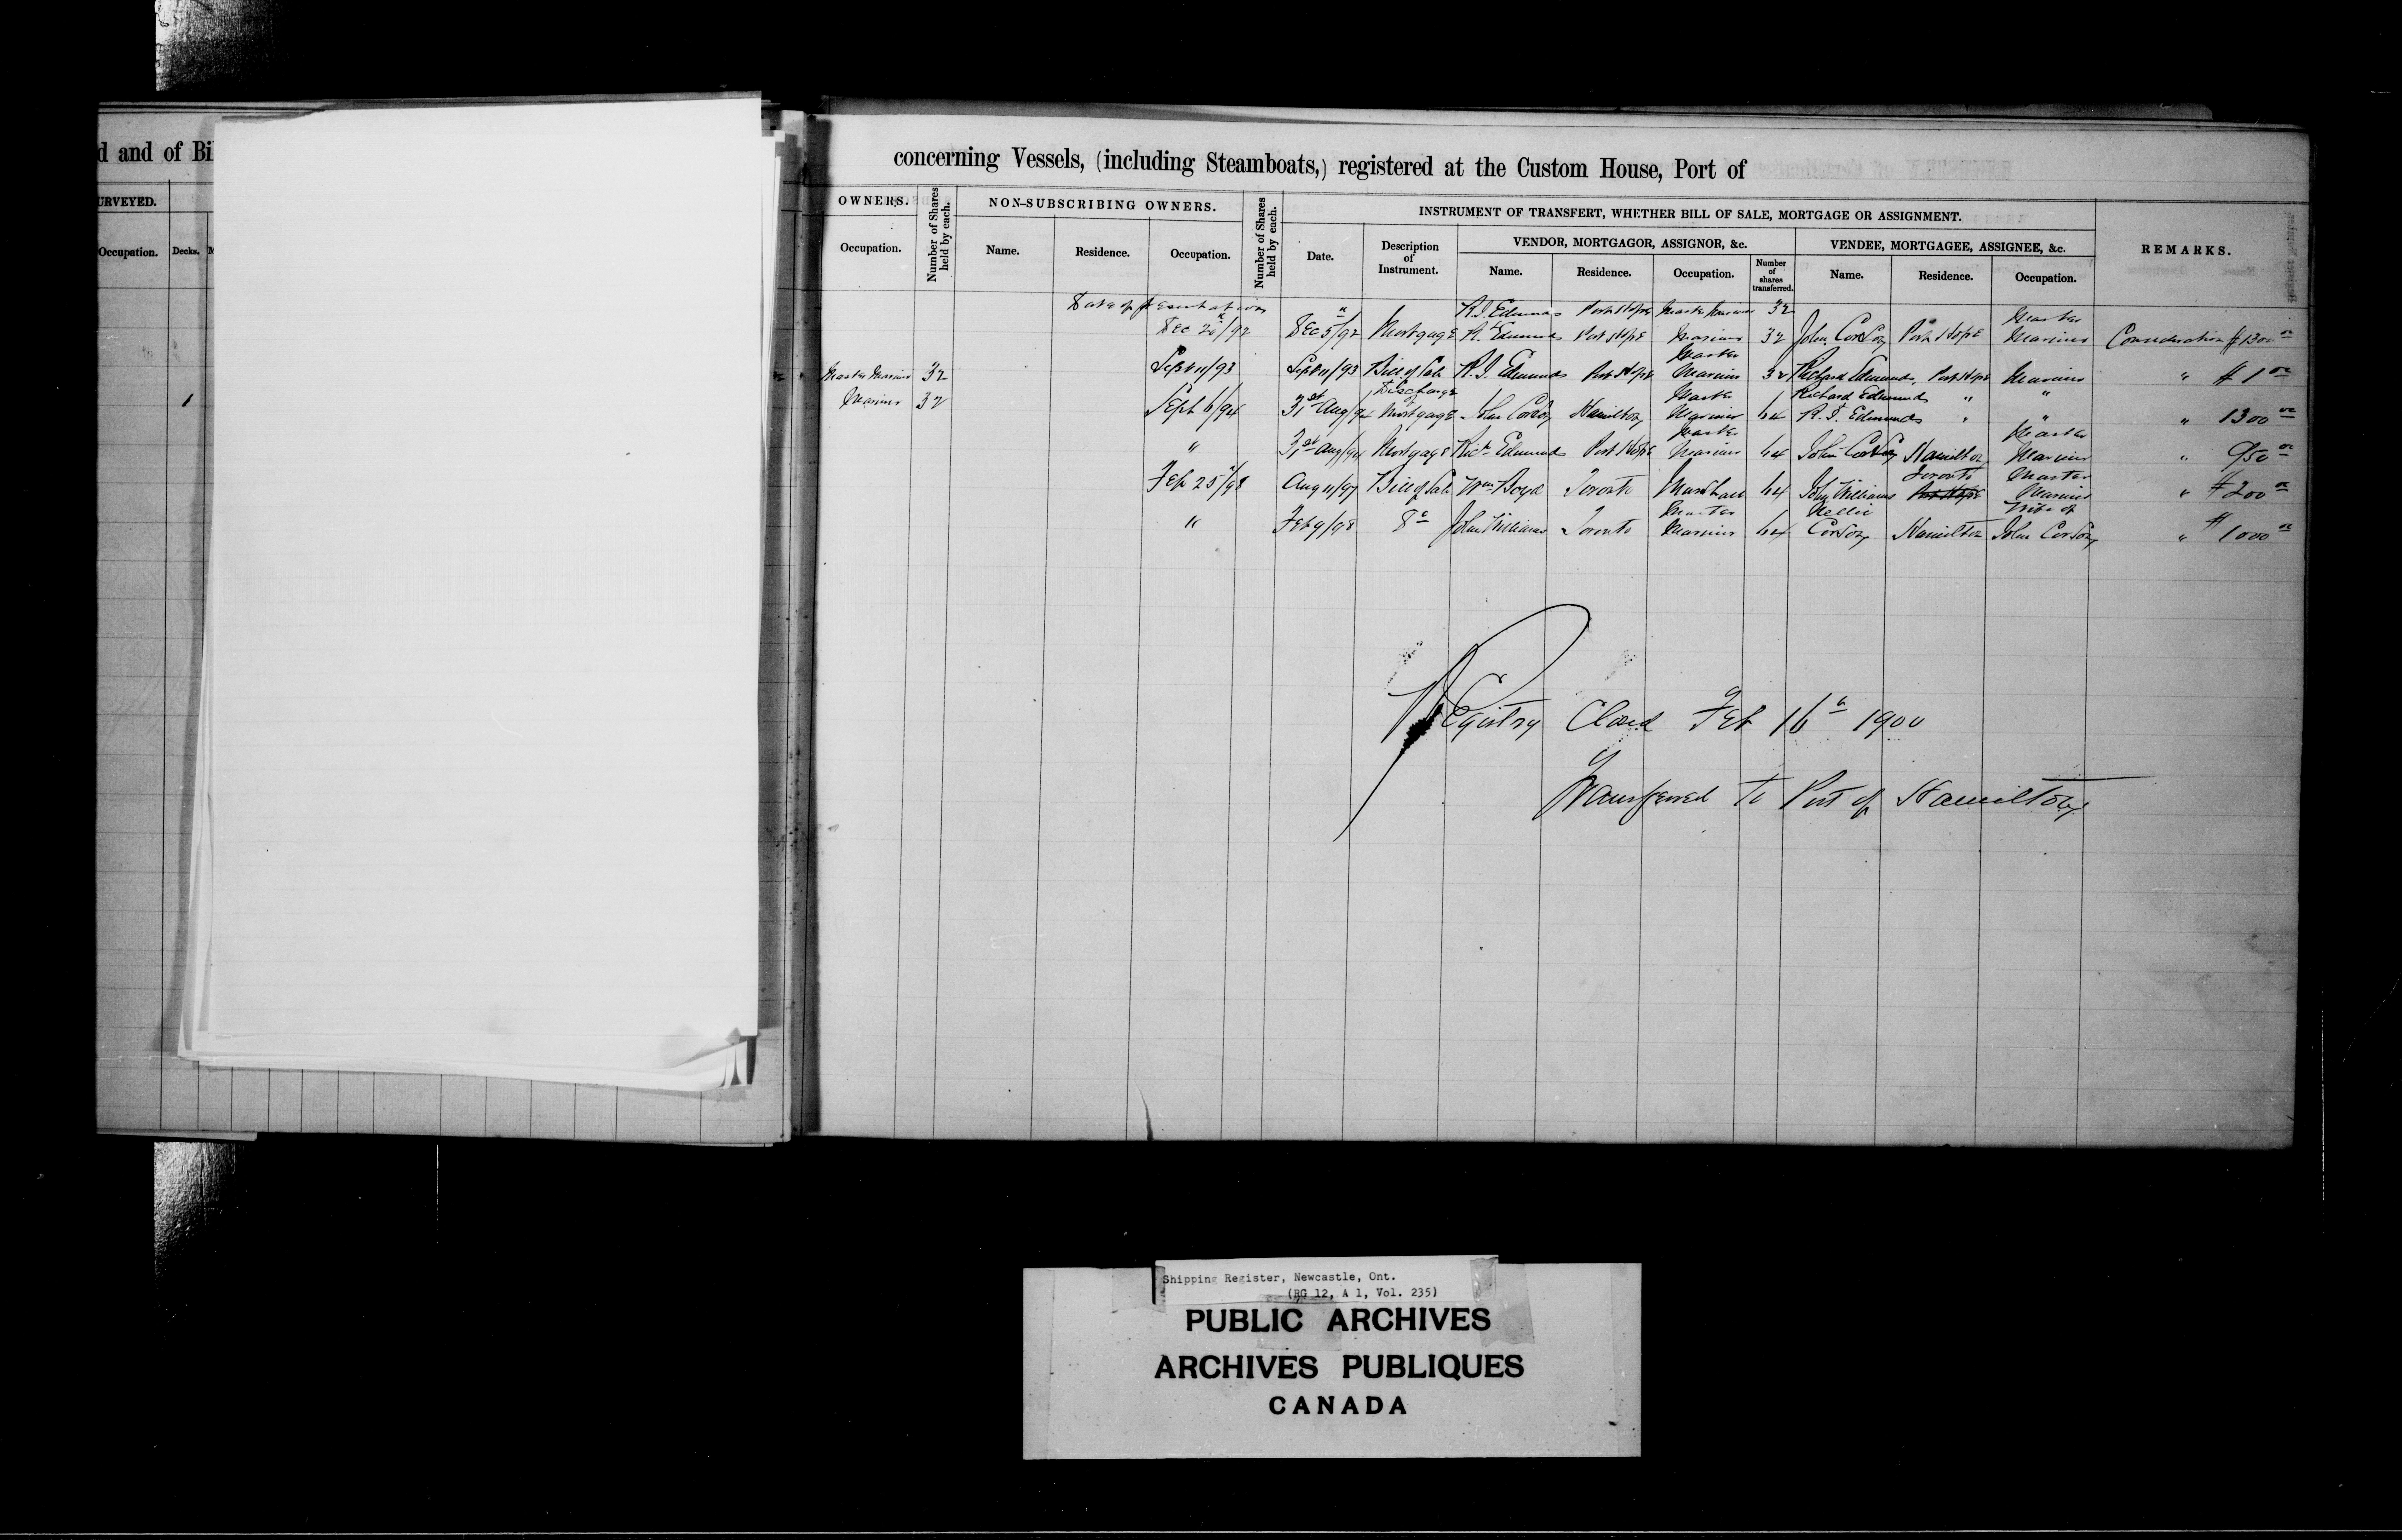 d and of Bi
URVEYED.
Occupation. Decks.
1
concerning Vessels, (including Steamboats,) registered at the Custom House, Port of
OWNERS. Number of Shares held by each. NON-SUBSCRIBING OWNERS. Number of Shares held by each. INSTRUMENT OF TRANSFERT, WHETHER BILL OF SALE, MORTGAGE OR ASSIGNMENT. REMARKS.
VENDOR, MORTGAGOR, ASSIGNOR, &c. VENDEE, MORTGAGEE, ASSIGNEE, &c.
Occupation. Name. Residence. Occupation. Date. Description of Instrument. Name. Residence. Occupation. Number of shares transferred. Name. Residence. Occupation.
Date of presentation R. J. Edmunds Port Hope Master Mariner 32
Dec 20/92 Dec 5th/92 Mortgage R. Edmunds Port Hope Mariner 32 John Port Hope Master Mariner Consideration $1300 00
Master Mariner 32 Sept 11/93 Sept 11/93 Bill of Sale R. J. Edmunds Port Hope Master Mariner 32 Richard Edmunds, Port Hope Mariner " $1 00
Mariner 32 Sept 6/94 31st Aug/94 Discharge of Mortgage John Hamilton Master Mariner 64 Richard Edmunds " "
R. J. Edmunds " " " 1300 00
" 31st Aug/94 Mortgage Richd Edmunds Port Hope Master Mariner 64 John Hamilton Master Mariner " 950 00
Feb 25th/98 Aug 11/97 Bill of Sale Wm Boyd Toronto 64 John Williams Port Hope Toronto Master Mariner " $200 00
" Feb 9/98 Do John Williams Toronto Master Mariner 64 Nellie Hamilton Wife of John " $1000 00
Registry Closed Feb 16th 1900
Transferred to Port of Hamilton
Shipping Register, Newcastle, Ont.
(RG 12, A 1, Vol. 235)
PUBLIC ARCHIVES
ARCHIVES PUBLIQUES
CANADA